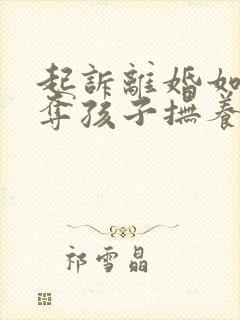 起訴離婚如
奪孩子撫養
祁雪晶